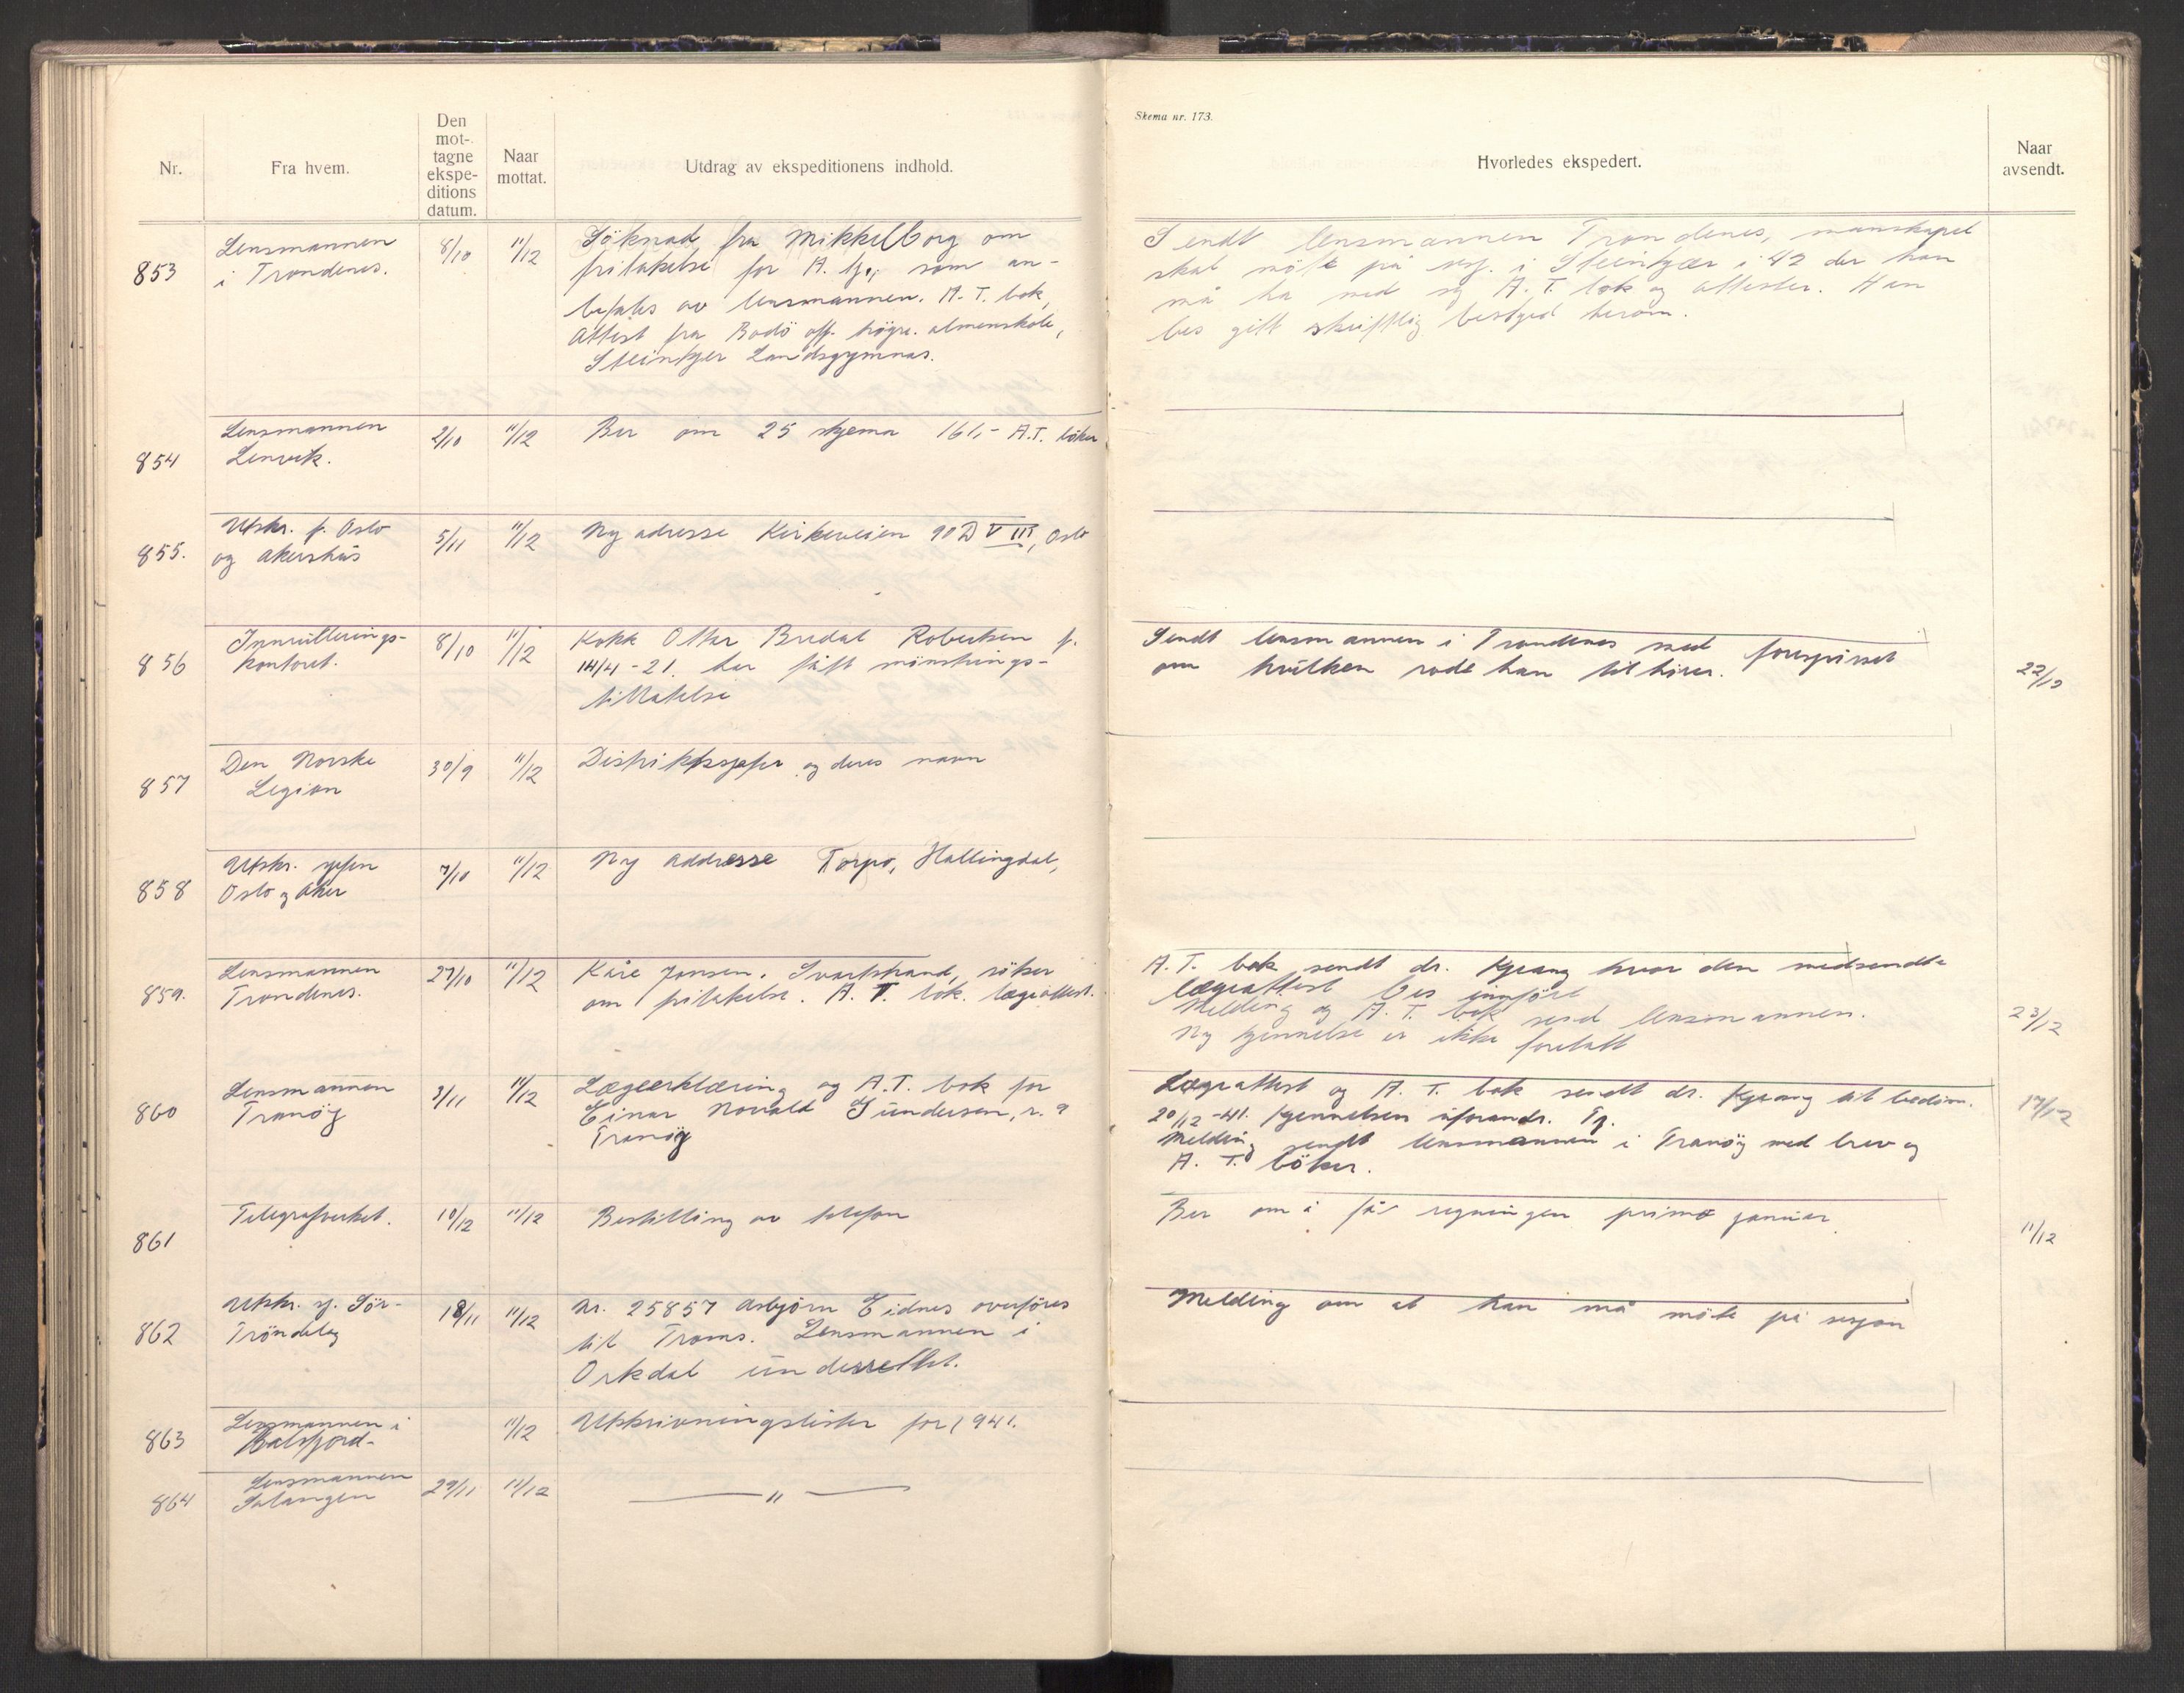 Skema nr. 173.
Nr.
Fra hvem.
Den
mot-
tagne
ekspe-
ditions
datum.
Naar
mottat.
Utdrag av ekspeditionens indhold.
Hvorledes ekspedert.
Naar
avsendt.
853
Lensmannen
i Trondenes.
8/10
11/12
Söknad fra Mikkelborg om
fritakelse for A. tj., som an-
befales av lensmannen. A.T. bok,
Attest fra Bodö off. högre almenskole,
Steinkjer Landsgymnas.
Sendt lensmannen Trondenes, manskapet
skal möte på sesj. i Steinkjer i 42 der han
må ha med sig A.T. bok og attester. Han
bes gitt skriftlig beskjed herom.
854
Lensmannen
Lenvik.
2/10
11/12
Ber om 25 skjema 161,- A.T. böker
855.
Utskr. f. Oslo
og Akershus
5/11
11/12
Ny adresse Kirkeveien 90 D V III, Oslo
856
Innrullerings-
kontoret.
8/10
11/12
Kokk Ottar Bredal Robertsen f.
14/4-21. har fått mönstrings-
tillatelse
Sendt lensmannen i Trondenes med forespörsel
om hvilken rode han tilhörer.
22/12
857
Den Norske
Legion
30/9
11/12
Distriktssjefer og deres navn
858
Utskr. sjefen
Oslo og Aker
7/10
11/12
Ny addresse Torpo, Hallingdal,
859.
Lensmannen
Trondenes.
27/10
11/12
Kåre Jensen, Svartstrand, söker
om fritakelse. A.T. bok. lægeattest.
A.T. bok sendt dr. Kjrang hvor den medsendte
lægeattest bes innfört
Melding og A.T. bok send lensmannen.
Ny kjennelse er ikke foretatt
23/12
860
Lensmannen
Tranöy
3/11
11/12
Lægeerklæring og A.T. bok for
Einar Norvald Gundersen, r. 9
Tranöy
Lægeattest og A.T. bok sendt dr. Kjrang til bedöm.
20/12-41. Kjennelsen uforandr. Tj.
Melding sendt lensmannen i Tranöy med brev og
A.T. böker.
17/12
861
Telegrafverket.
10/12
11/12
Bestilling av telefon
Ber om å få regningen primo januar.
11/12
862
Utskr. sj. Sör-
Tröndelag
18/11
11/12
Nr. 25857 Asbjörn Eidnes overföres
til Troms. Lensmannen i
Orkdal underrettet.
Melding om at han må möte på sesjon
863
Lensmannen i
Balsfjord-
11/12
Utskrivningslister for 1941.
864
Lensmannen
Salangen
29/11
11/12
— " —